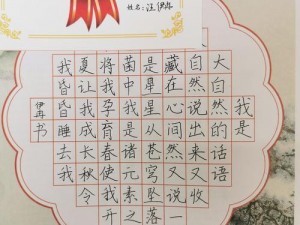 姓名：汪伊冉
我是
大自然的话语
自然说出来又收
藏在心间然又说一
是星星从苍穹坠落
菌中我是诸元素之
将我孕育春使我开
夏让我成长秋令
我昏昏睡去我
伊冉书